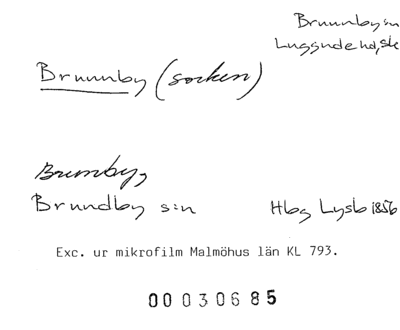 Brunnby sn
Luggude hd, Sk
Brunnby (socken)
Brumby,
Brundby s:n Hbg Lysb 1856
Exc. ur mikrofilm Malmöhus län KL 793.
00030685